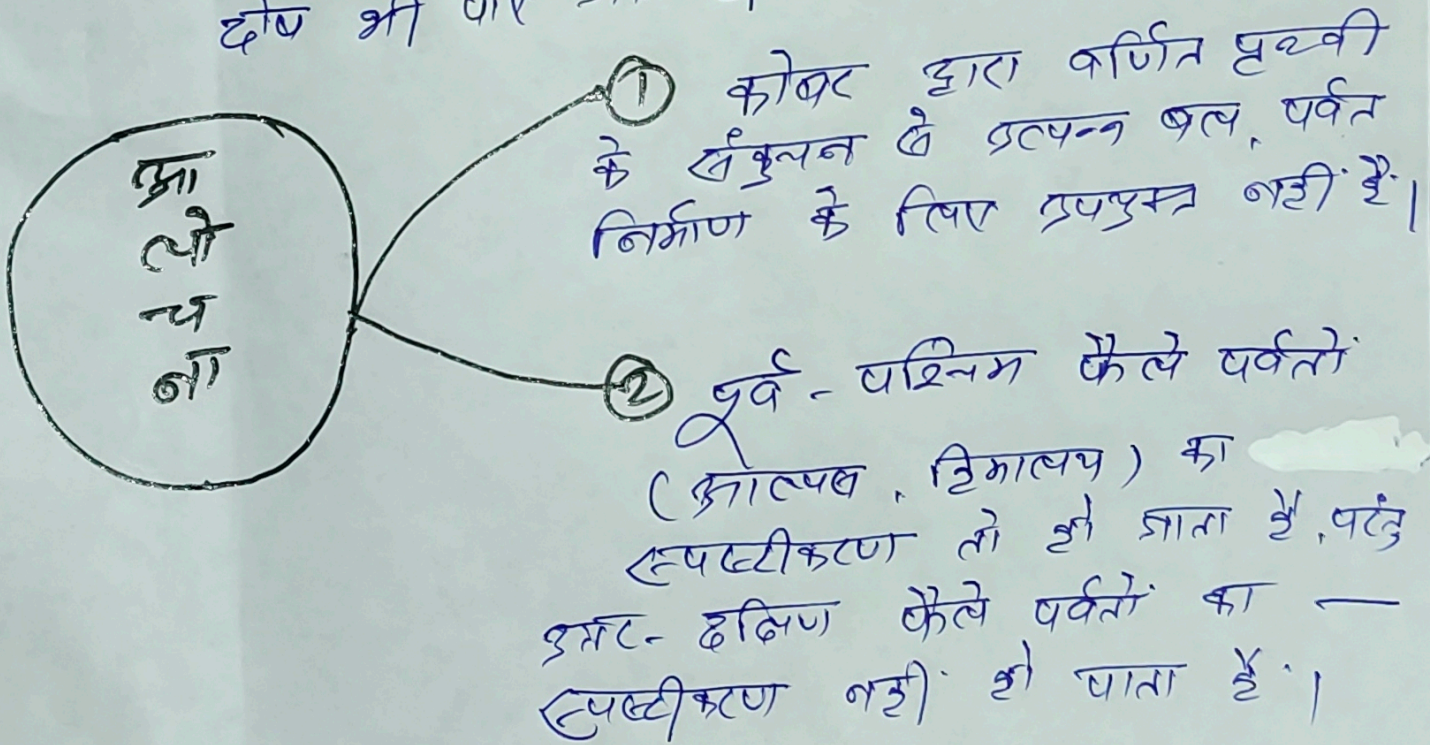 दोष भी
आ
लो
च
ना
① कोबर द्वारा वर्णित पृथ्वी
के संकुलन से उत्पन्न बल, पर्वत
निर्माण के लिए उपयुक्त नहीं हैं।
② पूर्व - पश्चिम फैले पर्वतों
(आल्पस, हिमालय) का
स्पष्टीकरण तो हो जाता है, परंतु
उत्तर - दक्षिण फैले पर्वतों का —
स्पष्टीकरण नहीं हो पाता है।